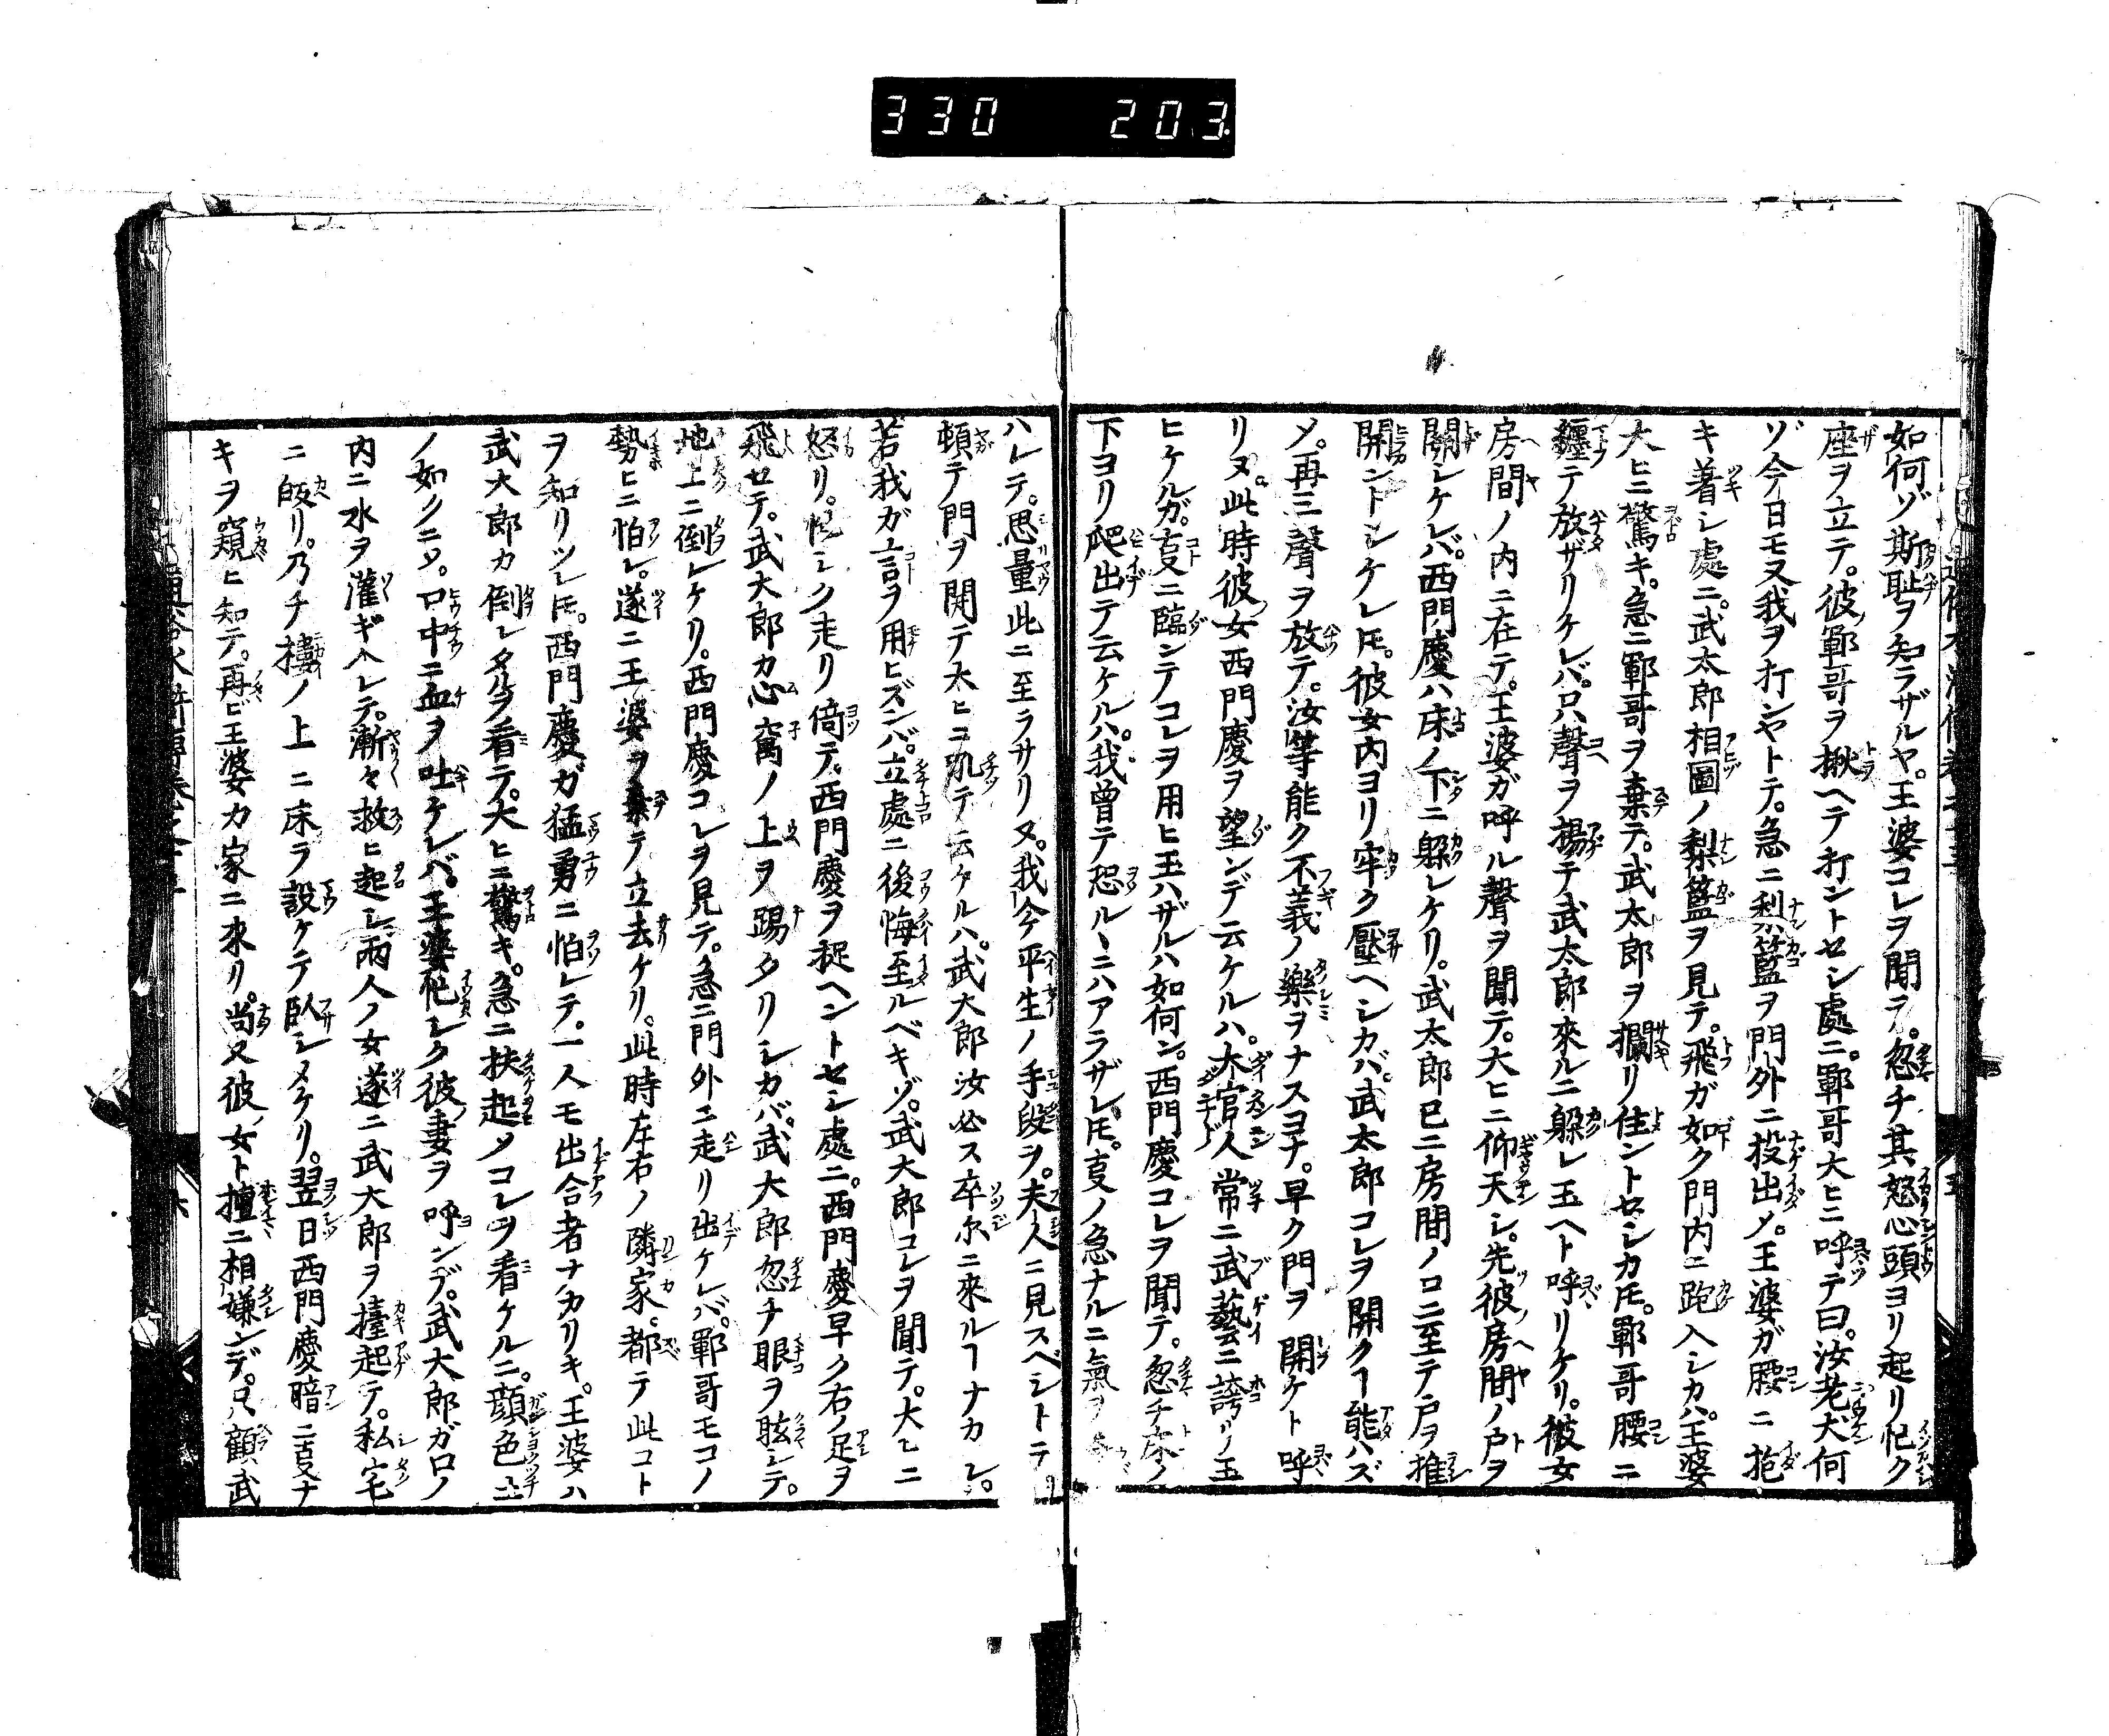 330 203
如何ゾ斯耻ヲ知ラザルヤ。王婆コレヲ聞テ。忽チ其怒心頭ヨリ起リ忙ク
座ヲ立テ。彼鄆哥ヲ揪ヘテ打ントセシ處ニ。鄆哥大ヒニ呼テ曰。汝老犬何
ゾ今日モ又我ヲ打ンヤトテ。急ニ梨籃ヲ門外ニ投出メ。王婆ガ腰ニ抱
キ着シ處ニ。武太郎相圖ノ梨籃ヲ見テ。飛ガ如ク門内ニ跑入シカバ。王婆
大ヒニ驚キ。急ニ鄆哥ヲ棄テ。武太郎ヲ攔リ住ントセシカ𪜈。鄆哥腰ニ
纏テ放ザリケレバ。只聲ヲ揚テ武太郎來ルニ躱レ玉ヘト呼リケリ。彼女
房間ノ内ニ在テ。王婆ガ呼ル聲ヲ聞テ。大ヒニ仰天シ。先彼房間ノ戸ヲ
關シケレバ。西門慶ハ床ノ下ニ躱レケリ。武太郎已ニ房間ノ口ニ至テ戸ヲ推
開ントシケレ𪜈。彼女内ヨリ牢ク壓ヘシカバ。武太郎コレヲ開クヿ能ハズ
メ。再三聲ヲ放テ。汝等能ク不義ノ樂ヲナスヨナ。早ク門ヲ開ケト呼
リヌ。此時彼女西門慶ヲ望ンデ云ケルハ。大官人常ニ武藝ニ誇リ玉
ヒケルガ。叓ニ臨ンテコレヲ用ヒ玉ハザルハ如何ン。西門慶コレヲ聞テ。忽チ床ノ
下ヨリ爬出テ云ケルハ。我曾テ恐ルヽニハアラザレ𪜈。叓ノ急ナルニ氣ヲ
ハレテ。思量此ニ至ラサリヌ。我今平生ノ手段ヲ。夫人ニ見スベシトテ。
頓テ門ヲ開テ大ヒニ吼テ云ケルハ。武大郎汝必ス卒尓ニ來ルヿナカレ。
若我ガ言ヲ用ヒズンバ。立處ニ後悔至ルベキゾ。武大郎コレヲ聞テ。大ヒニ
怒リ。忙シク走リ倚テ。西門慶ヲ捉ヘントセシ處ニ。西門慶早ク右ノ足ヲ
飛セテ。武大郎カ心窩ノ上ヲ踢タリシカバ。武大郎忽チ眼ヲ眩シテ。
地上ニ倒レケリ。西門慶コレヲ見テ。急ニ門外ニ走リ出ケレバ。鄆哥モコノ
勢ヒニ怕レ。遂ニ王婆ヲ棄テ立去ケリ。此時左右ノ隣家。都テ此コト
ヲ知リツレ𪜈。西門慶ガ猛勇ニ怕レテ。一人モ出合者ナカリキ。王婆ハ
武大郎カ倒レタルヲ看テ。大ヒニ驚キ。急ニ扶起メコレヲ看ケルニ。顔色土
ノ如クニメ。口中ニ血ヲ吐ケレバ。王婆忙シク彼妻ヲ呼ンデ。武大郎ガ口ノ
内ニ水ヲ灌ギ入レテ。漸々救ヒ起シ兩人ノ女遂ニ武大郎ヲ擡起テ。私宅
ニ皈リ。乃チ樓ノ上ニ床ヲ設ケテ臥シメケリ。翌日西門慶暗ニ叓ナ
キヲ窺ヒ知テ。再ビ王婆カ家ニ來リ。尚又彼女ト擅ニ相嫌ンデ。只顧武